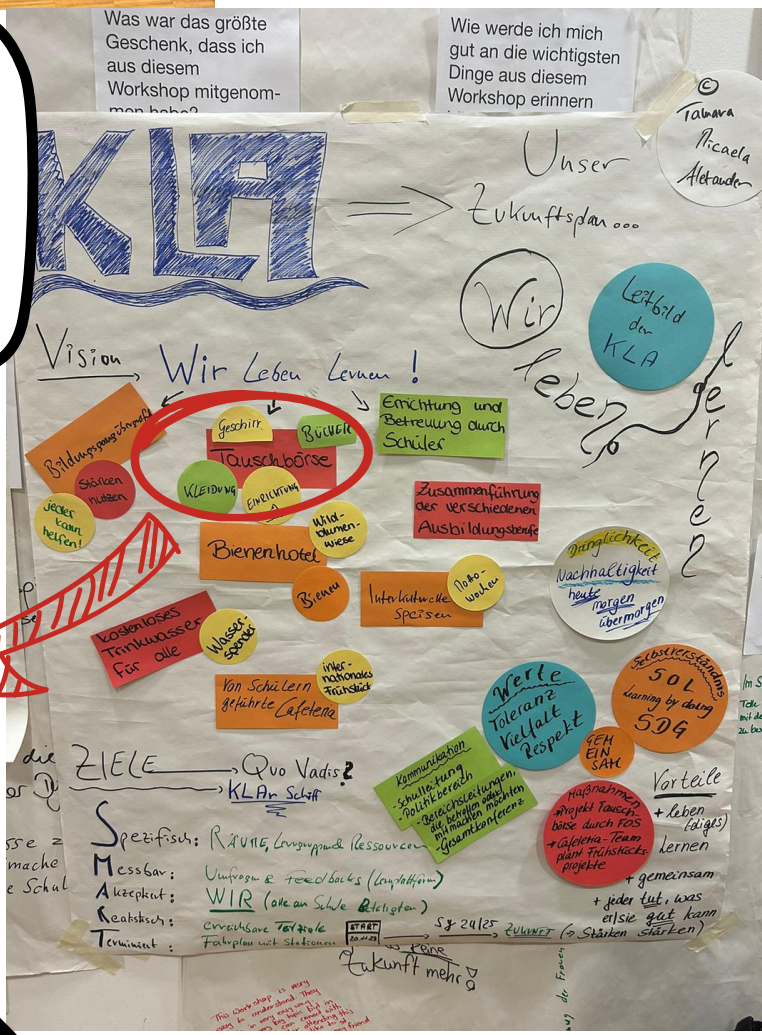 Was war das größte
Geschenk, dass ich
aus diesem
Workshop mitgenom-
men habe?
Wie werde ich mich
gut an die wichtigsten
Dinge aus diesem
Workshop erinnern
©
Tamara
Micaela
Alexander
KLA
Unser
Zukunftsplan...
Wir
leben
lernen
Leitbild
der
KLA
Vision
Wir Leben Lernen!
Bildungsgangübergreifend
Stärken
nutzen
jeder
kann
helfen!
Geschirr
BÜCHER
Tauschbörse
KLEIDUNG
EINRICHTUNG
Errichtung und
Betreuung durch
Schüler
Zusammenführung
der verschiedenen
Ausbildungsberufe
Bienenhotel
Wild-
blumen-
wiese
Bienen
Interkulturelle
Speisen
Motto-
wochen
Dringlichkeit
Nachhaltigkeit
heute
morgen
übermorgen
kostenloses
Trinkwasser
für alle
Wasser-
spender
Von Schülern
geführte Cafeteria
inter-
nationales
Frühstück
Werte
Toleranz
Vielfalt
Respekt
Selbstverständnis
SOL
Learning by doing
SDG
GEM
EIN
SAM
ZIELE
Quo Vadis?
KLAr Schiff
Kommunikation
- Schulleitung
- Politikbereich
- Bereichsleitungen,
die helfen oder
mitmachen möchten
- Gesamtkonferenz
Maßnahmen
Projekt Tausch-
börse durch FOS
Cafeteria-Team
plant Frühstücks-
projekte
Vorteile
+ leben
(diges)
Lernen
+ gemeinsam
+ jeder tut, was
er/sie gut kann
(→ Stärken stärken)
Spezifisch: RÄUME, Lerngruppen & Ressourcen
Messbar: Umfragen & Feedbacks (Lernplattform)
Akzeptiert: WIR (alle an Schule Beteiligten)
Realistisch: erreichbare Teilziele
Terminiert: Fahrplan mit Stationen
START
20.11.23
SJ 24/25
ZUKUNFT
keine
Zukunft mehr!
This workshop is very
easy to understand. They